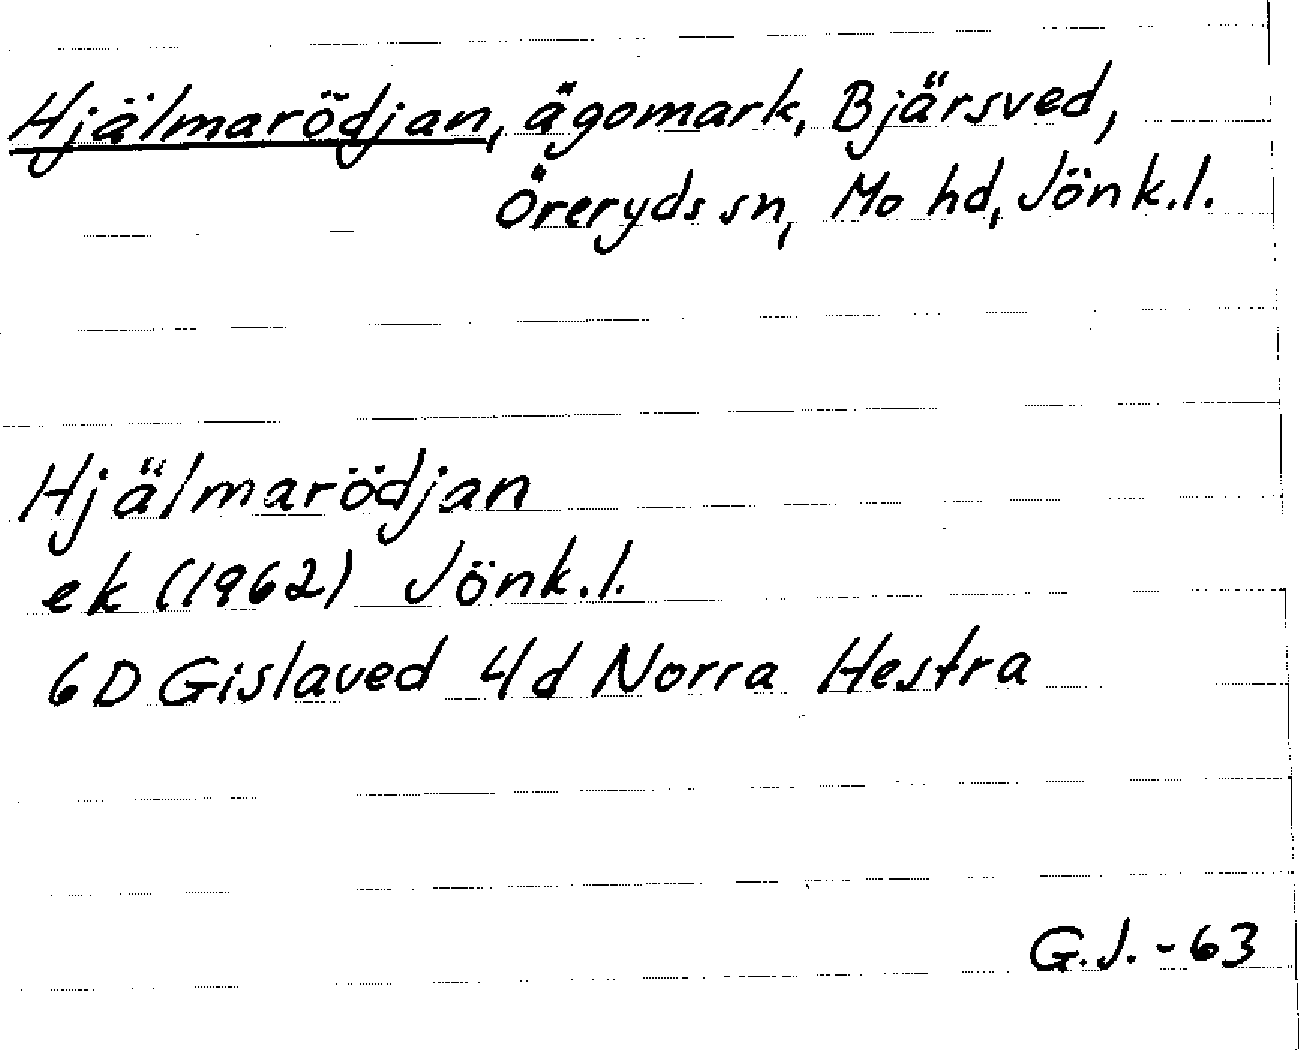 Hjälmarödjan, ägomark, Bjärsved,
Öreryds sn, Mo hd, Jönk.l.
Hjälmarödjan
ek (1962) Jönk.l.
6D Gislaved 4d Norra Hestra
G.J. - 63